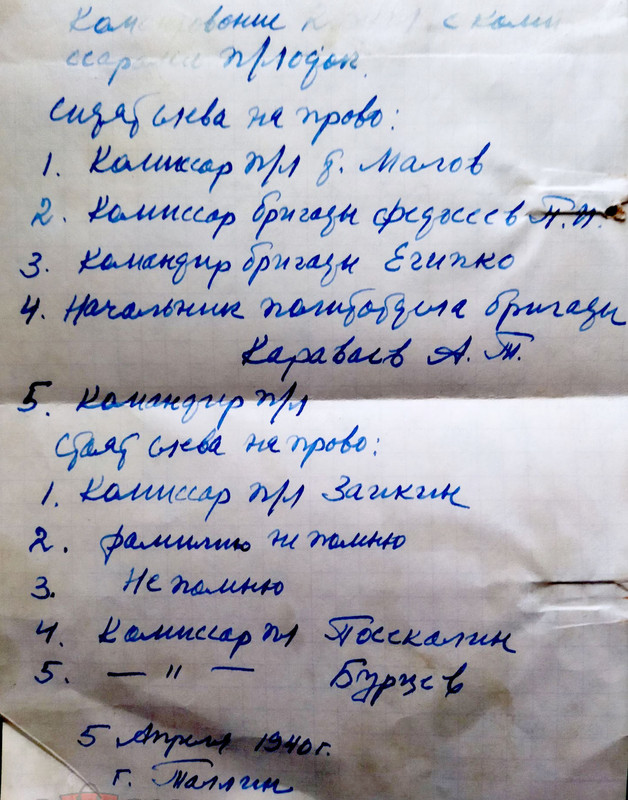 с коми
ссарами п/лодок.
Сидят слева на право:
1. Комиссар п/л т. Малов
2. Комиссар бригады Федосеев П.И.
3. Командир бригады Египко
4. Начальник политотдела бригады
Караваев А. Т.
5. Командир п/л
Стоят слева на право:
1. Комиссар п/л Заикин
2. фамилию не помню
3. Не помню
4. Комиссар пл Посскалин
5. — " — Бурцев
5 Апреля 1940 г.
г. Таллин